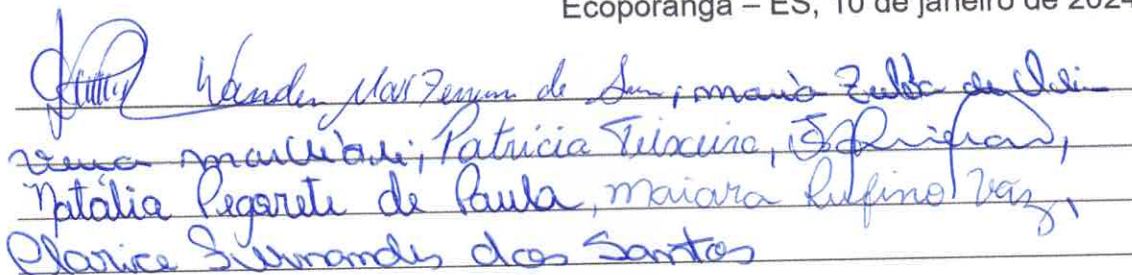 Ecoporanga – ES, 10 de janeiro de 2024
Wander de , maria Zulda de Oli-
veira , Patricia Teixeira,
Natália Pegorete de Paula, maiara Rufino Vaz,
Clarice Fernandes dos Santos